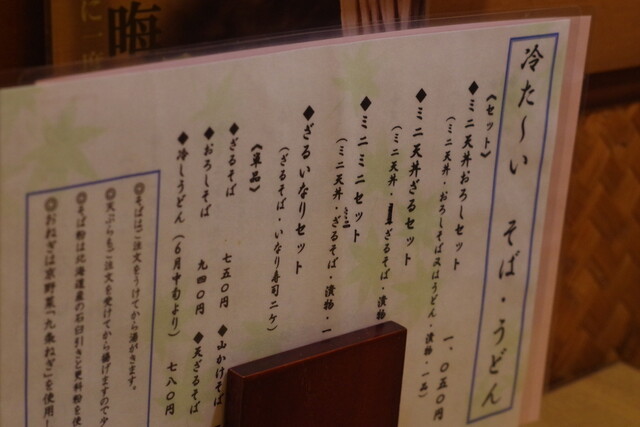 冷た～い そば・うどん
《セット》
◆ミニ天丼おろしセット 一、〇五〇円
(ミニ天丼・おろしそば又はうどん・漬物・一品)
◆ミニ天丼ざるセット
(ミニ天丼・ざるそば・漬物
◆ミニミニセット
(ミニ天丼・ミニざるそば・漬物・一
◆ざるいなりセット
(ざるそば・いなり寿司二ケ)
《単品》
◆ざるそば 七五〇円 ◆山かけそば
◆おろしそば 九四〇円 ◆天ざるそば
◆冷しうどん (6月中旬より) 七八〇円
◎そばはご注文をうけてから湯がきます。
◎天ぷらもご注文を受けてから揚げますので少
◎そば粉は北海道産の石臼引きと更科粉を使
◎おねぎは京野菜「九条ねぎ」を使用し
晦
に一度